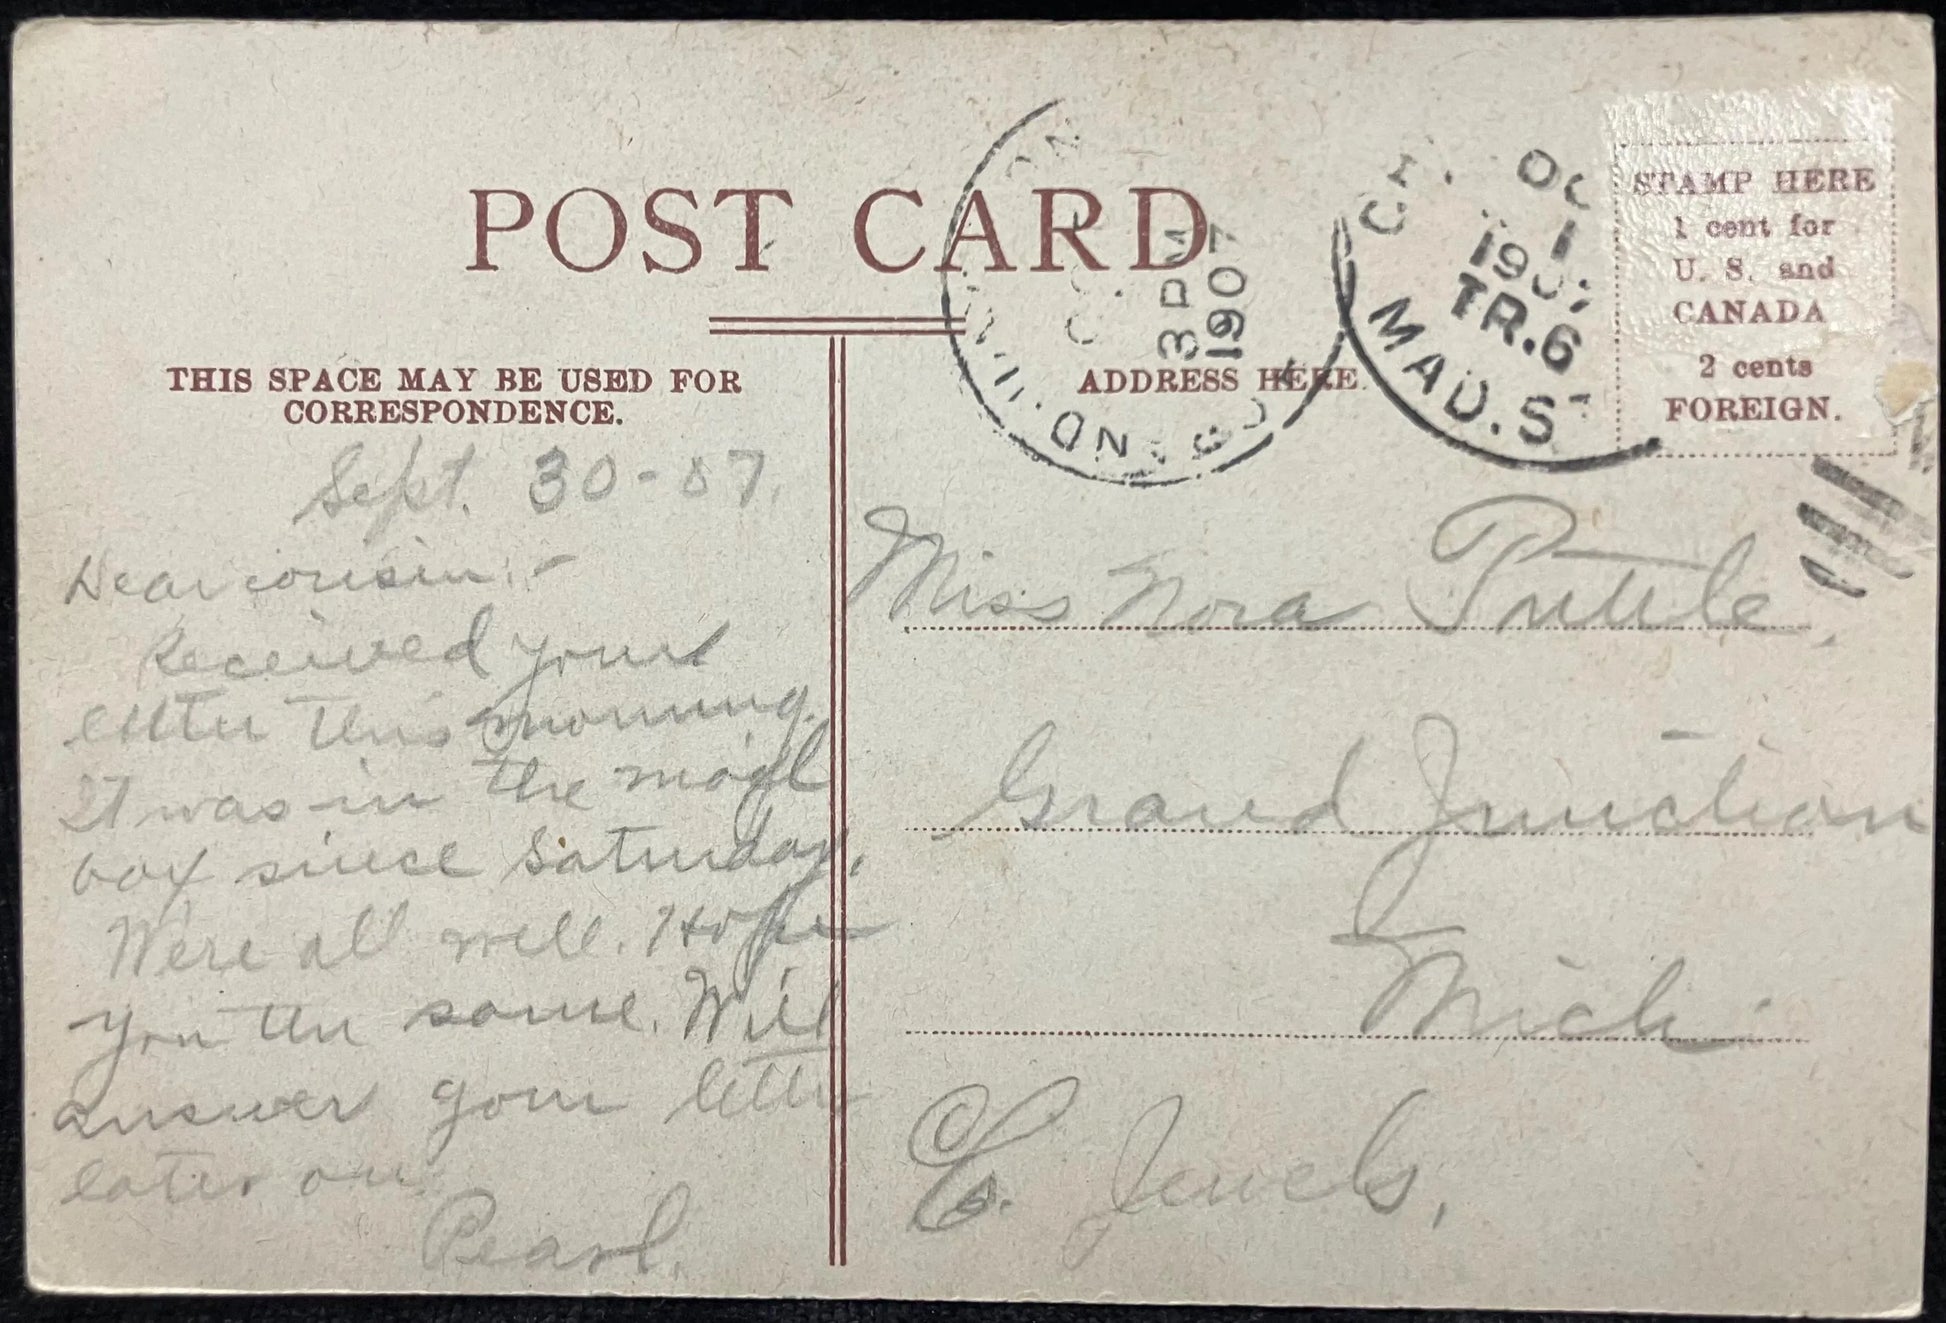 POST CARD
THIS SPACE MAY BE USED FOR
CORRESPONDENCE.
ADDRESS HERE.
STAMP HERE
1 cent for
U. S. and
CANADA
2 cents
FOREIGN.
3 PM
1907
GRAND JUNCTION
OC
1
190
TR.6
MAD. ST
Sept. 30-07.
Dear cousin:-
Received your
letter this morning.
It was in the mail
box since Saturday.
We're all well. Hope
you the same. Will
answer your letter
later on.
Pearl.
Miss Nora Tuttle,
Grand Junction
Mich.
Jewels,